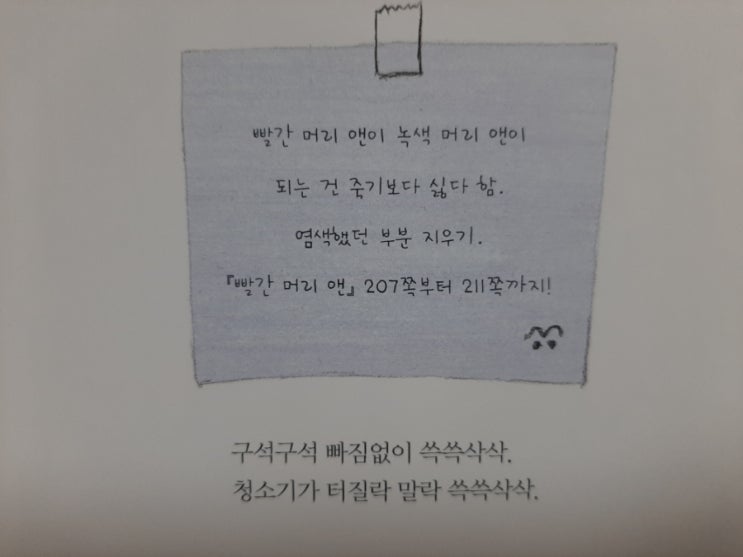 빨간 머리 앤이 녹색 머리 앤이
되는 건 죽기보다 싫다 함.
염색했던 부분 지우기.
『빨간 머리 앤』 207쪽부터 211쪽까지!
구석구석 빠짐없이 쓱쓱삭삭.
청소기가 터질락 말락 쓱쓱삭삭.